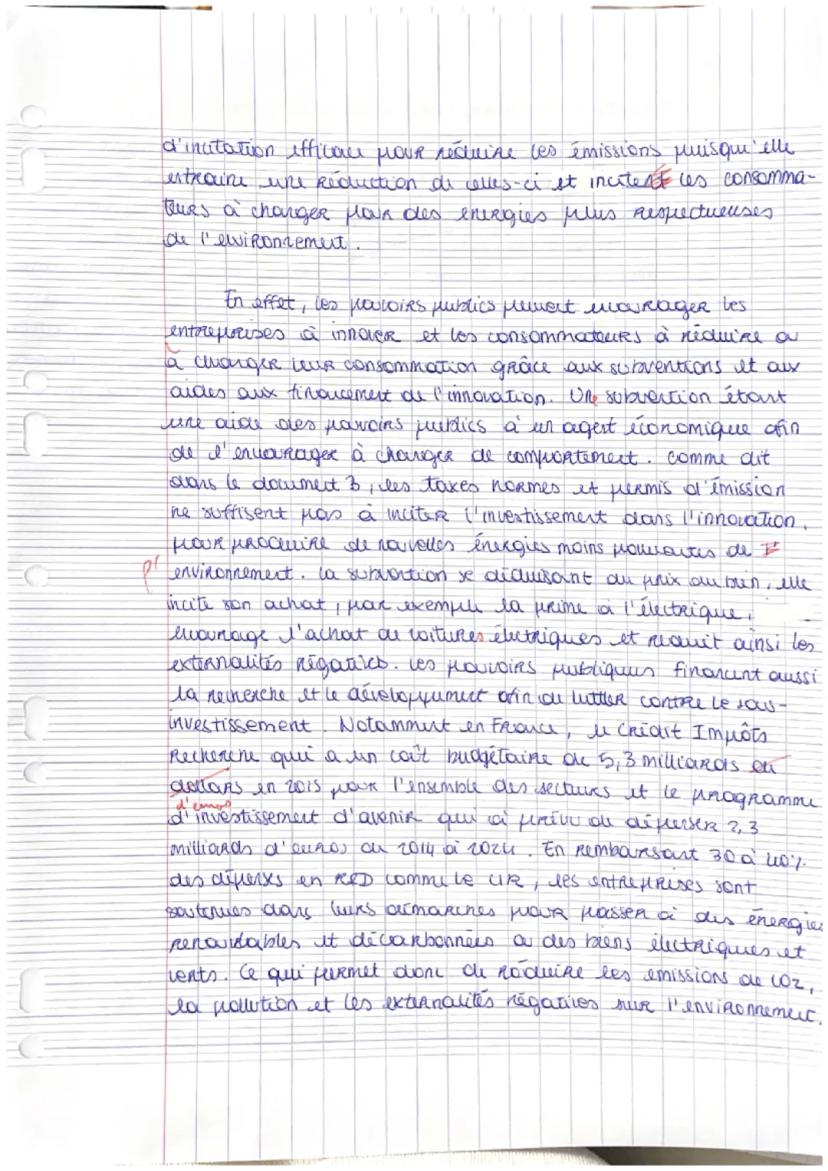 d'incitation efficace pour réduire les émissions puisqu'elle
entraine une réduction de celles-ci et incitent les consomma-
teurs à changer pour des énergies plus respectueuses
de l'environnement.
En effet, les pouvoirs publics peuvent encourager les
entreprises à innover et les consommateurs à réduire ou
à changer leur consommation grâce aux subventions et aux
aides aux financement de l'innovation. Une subvention étant
une aide des pouvoirs publics à un agent économique afin
de l'encourager à changer de comportement. Comme dit
dans le document 3, les taxes normes et permis d'émission
ne suffisent pas à inciter l'investissement dans l'innovation,
pour produire de nouvelles énergies moins polluantes de
p' environnement. La subvention se déduisant au prix du bien, elle
incite son achat, par exemple la prime à l'électrique,
encourage l'achat de voitures électriques et réduit ainsi les
externalités négatives. Les pouvoirs publiques financent aussi
la recherche et le développement afin de lutter contre le sous-
investissement. Notamment en France, le Crédit Impôts
Recherche qui a un coût budgétaire de 5,3 milliards
dollars en 2015 pour l'ensemble des secteurs et le programme
d'euros
d'investissement d'avenir qui a prévu de dépenser 2,3
milliards d'euros de 2014 à 2024. En remboursant 30 à 40%
des dépenses en R&D comme le CIR, les entreprises sont
soutenues dans leurs démarches pour passer à des énergies
renouvelables et décarbonnées ou des biens électriques et
verts. Ce qui permet donc de réduire les émissions de CO2,
la pollution et les externalités négatives sur l'environnement.